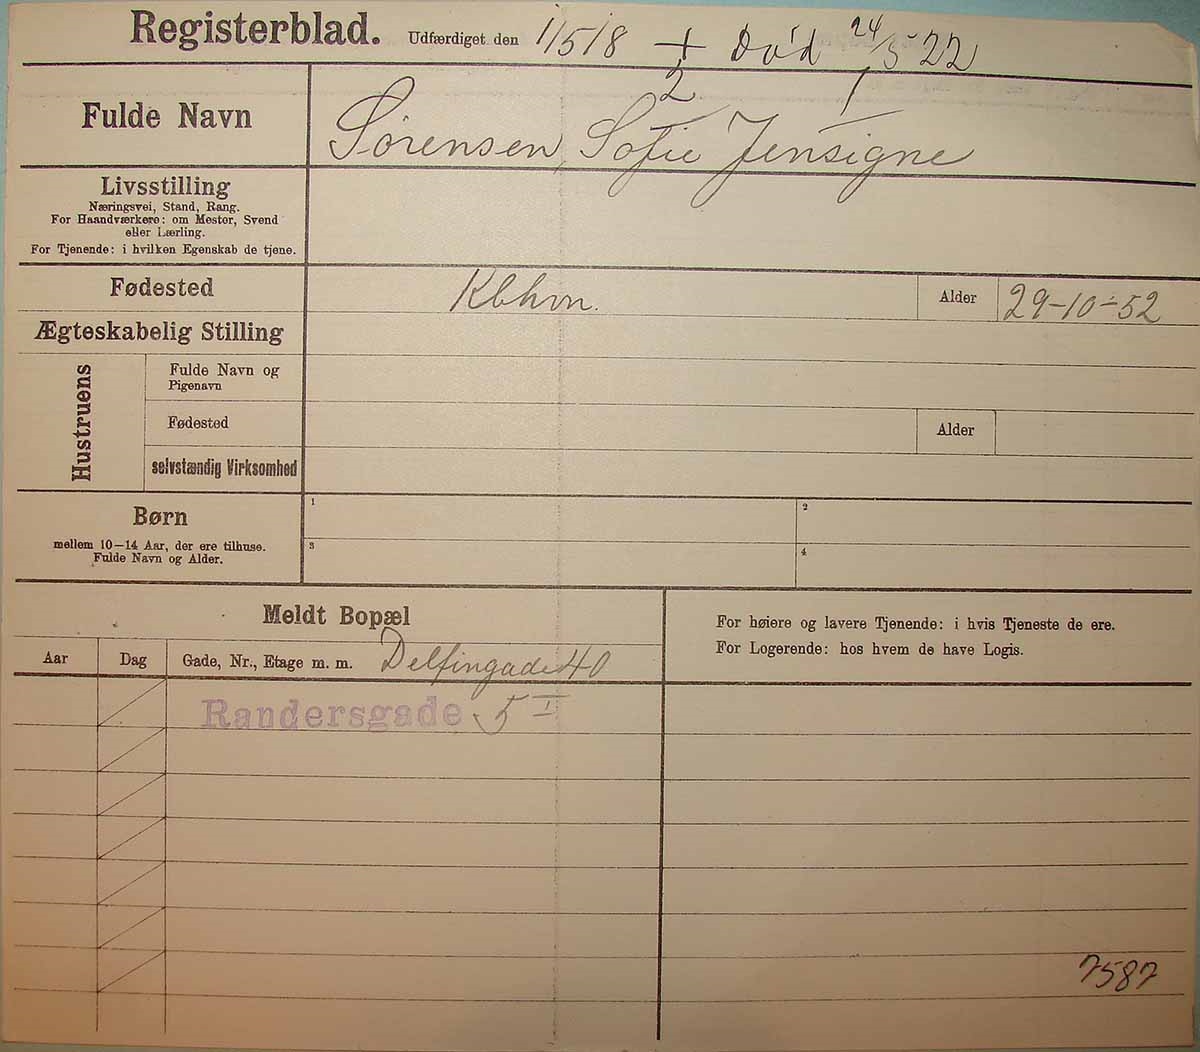 Registerblad. Udfærdiget den 1/5 18 + Død 24/5 22
2 1
Fulde Navn Sørensen, Sofie Jensigne
Livsstilling
Næringsvei, Stand, Rang.
For Haandværkere: om Mester, Svend
eller Lærling.
For Tjenende: i hvilken Egenskab de tjene.
Fødested Kbhvn. Alder 29-10-52
Ægteskabelig Stilling
Hustruens
Fulde Navn og
Pigenavn
Fødested Alder
selvstændig Virksomhed
Børn
mellem 10—14 Aar, der ere tilhuse.
Fulde Navn og Alder.
1 2
3 4
Meldt Bopæl
For høiere og lavere Tjenende: i hvis Tjeneste de ere.
For Logerende: hos hvem de have Logis.
Aar Dag Gade, Nr., Etage m. m. Delfingade 40
Randersgade 5 I
7587